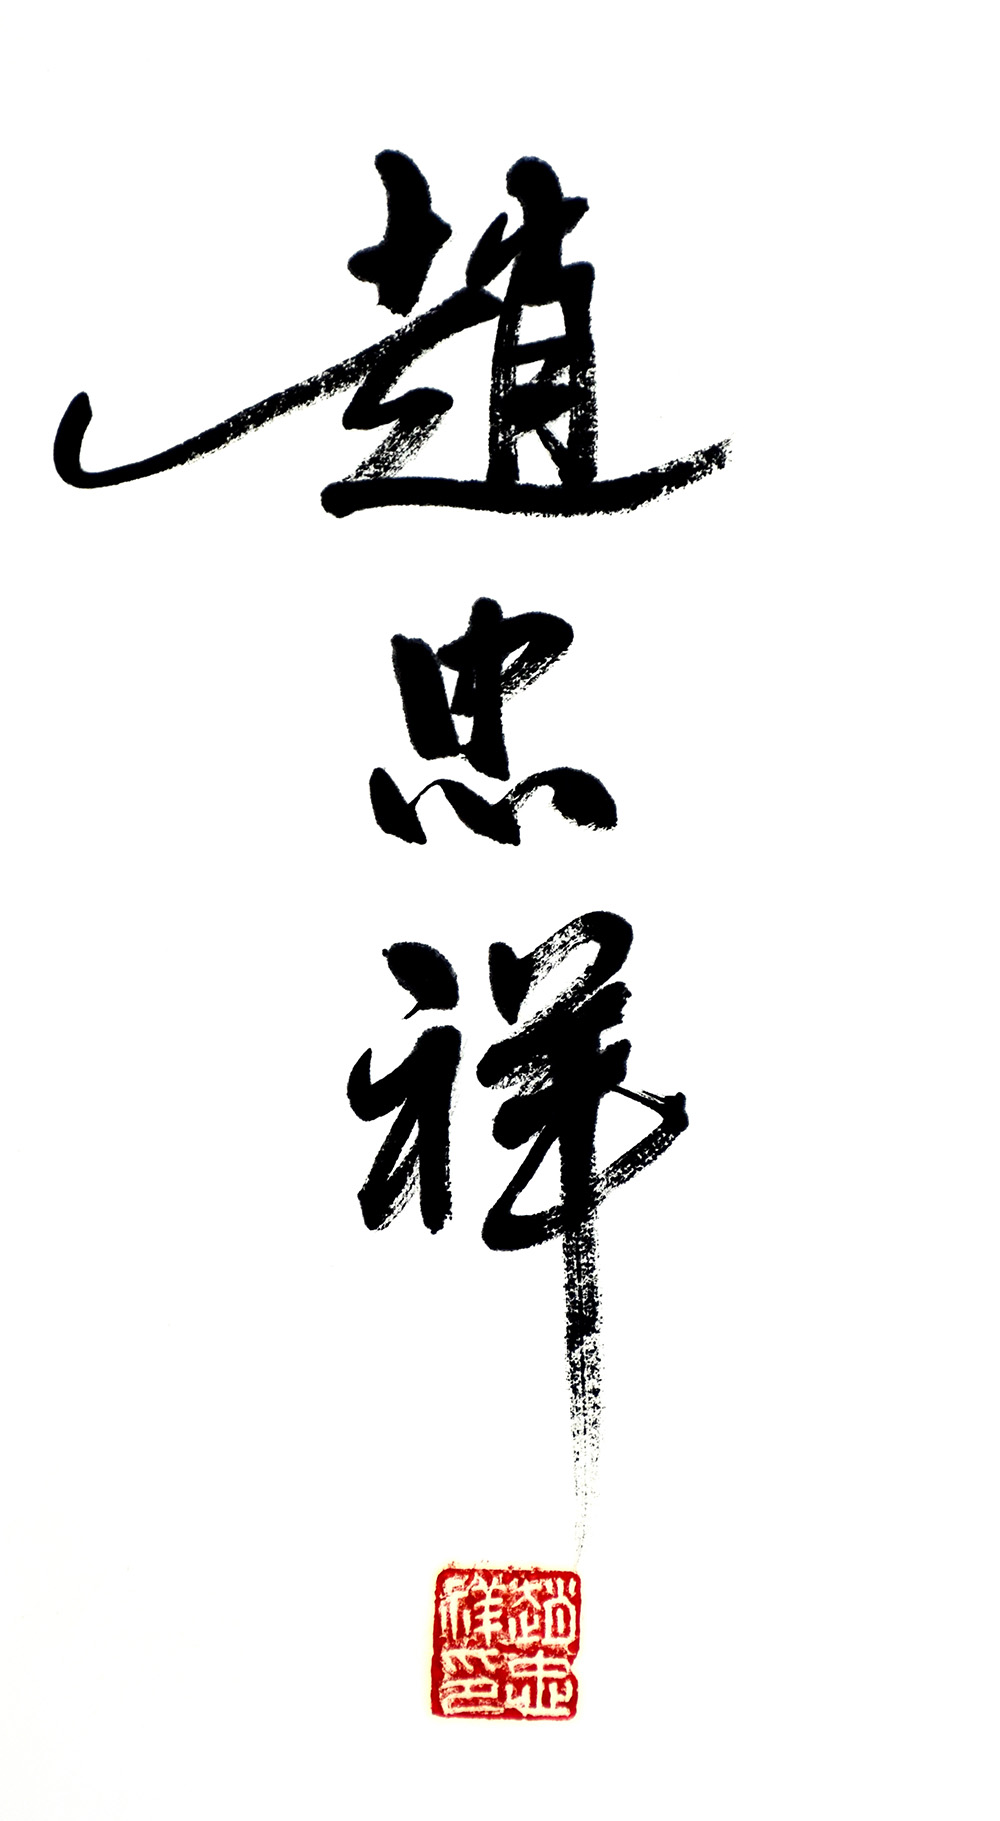 趙忠祥
趙忠祥印